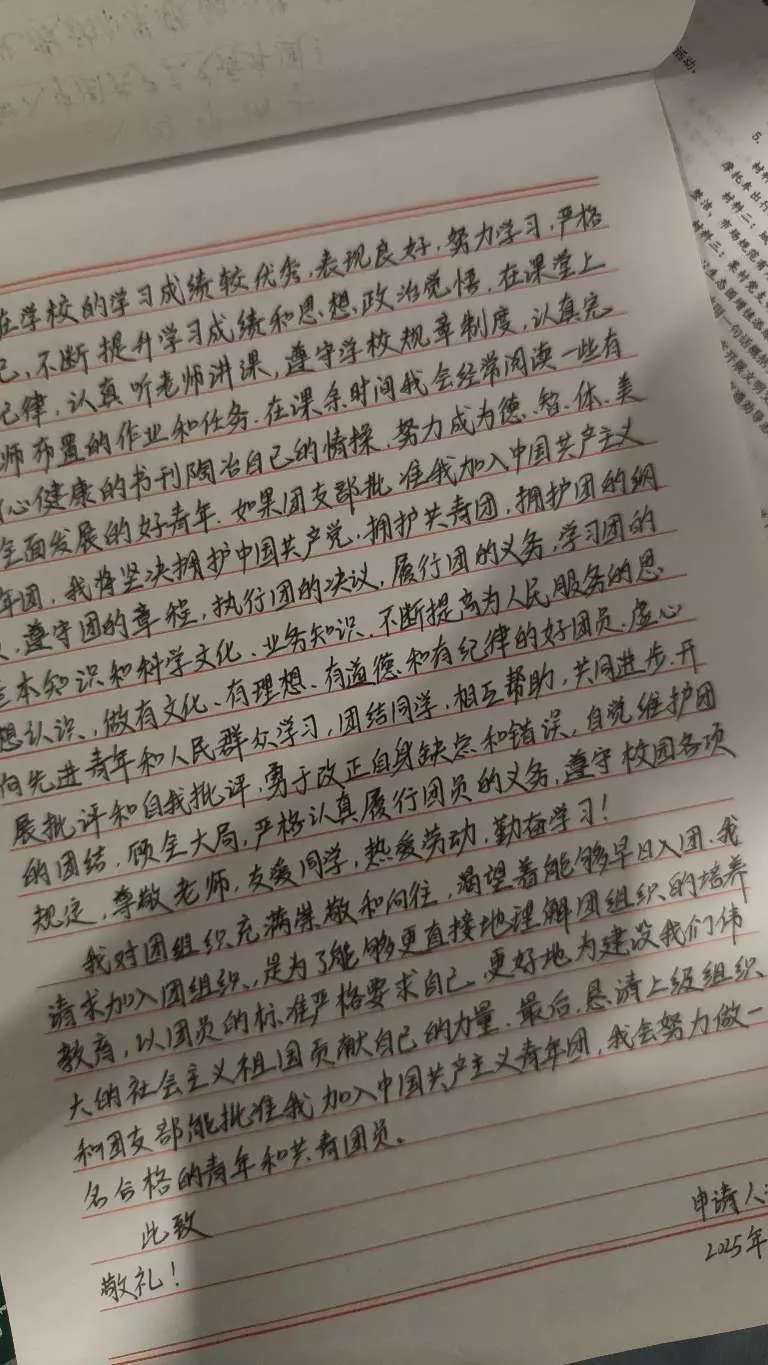 在学校的学习成绩较优秀,表现良好,努力学习,严格
己,不断提升学习成绩和思想政治觉悟,在课堂上
纪律,认真听老师讲课,遵守学校规章制度,认真完
师布置的作业和任务.在课余时间我会经常阅读一些有
心健康的书刊陶冶自己的情操,努力成为德、智、体、美
全面发展的好青年.如果团支部批准我加入中国共产主义
年团,我将坚决拥护中国共产党,拥护共青团,拥护团的纲
,遵守团的章程,执行团的决议,履行团的义务,学习团的
基本知识和科学文化、业务知识,不断提高为人民服务的思
想认识,做有文化、有理想、有道德和有纪律的好团员.虚心
向先进青年和人民群众学习,团结同学,相互帮助,共同进步.开
展批评和自我批评,勇于改正自身缺点和错误,自觉维护团
的团结,顾全大局,严格认真履行团员的义务,遵守校园各项
规定,尊敬老师,友爱同学,热爱劳动,勤奋学习!
我对团组织充满崇敬和向往,渴望着能够早日入团.我
请求加入团组织,是为了能够更直接地理解团组织的培养
教育,以团员的标准严格要求自己,更好地为建设我们伟
大的社会主义祖国贡献自己的力量.最后,恳请上级组织
和团支部能批准我加入中国共产主义青年团,我会努力做一
名合格的青年和共青团员。
此致
敬礼!
申请人
2025年
活动.
5.
材料
摩托车出行
材料二:
整洁,市场规范有
材料三:某村党支